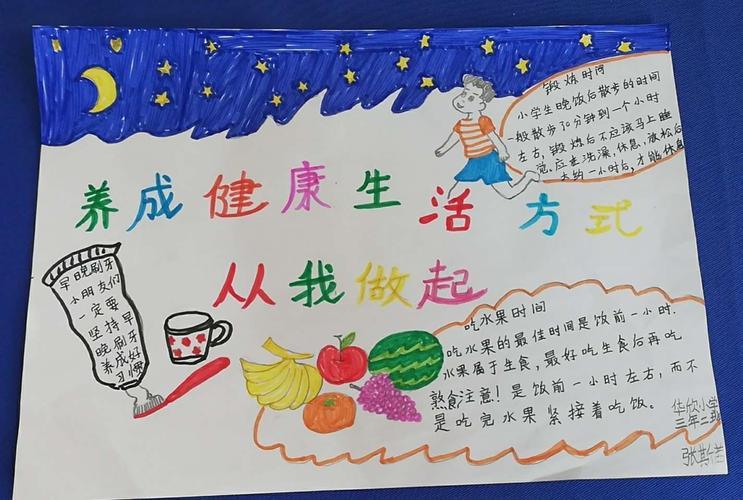 锻炼时间
小学生晚饭后散步的时间
一般散步30分钟到一个小时
左右，锻炼后不应该马上睡
觉.应在洗澡，休息，放松后
大约一小时后，才能休息
养成健康生活方式
从我做起
早晚刷牙
小朋友们
一定要
坚持早
晚刷牙
养成好
习惯
吃水果时间
吃水果的最佳时间是饭前一小时.
水果属于生食，最好吃生食后再吃
熟食注意！是饭前一小时左右，而不
是吃完水果紧接着吃饭。
华欣小学
三年二班
张